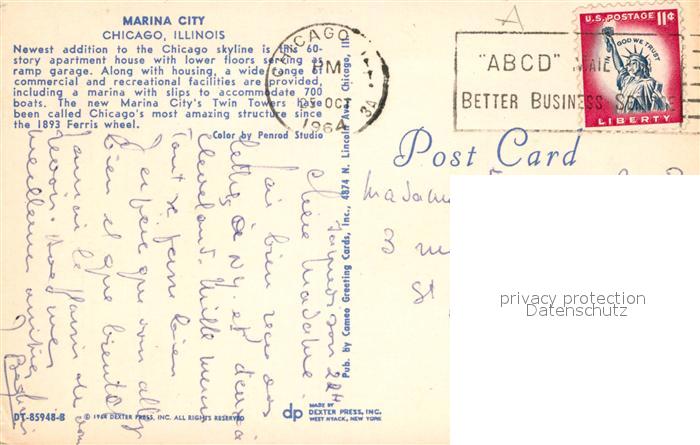 MARINA CITY
CHICAGO, ILLINOIS
Newest addition to the Chicago skyline is this 60-
story apartment house with lower floors serving as
ramp garage. Along with housing, a wide range of
commercial and recreational facilities are provided,
including a marina with slips to accommodate 700
boats. The new Marina City's Twin Towers have
been called Chicago's most amazing structure since
the 1893 Ferris wheel.
Color by Penrod Studio
CHICAGO, ILL
PM
OCT
1964
"ABCD" MAIL
BETTER BUSINESS
U.S. POSTAGE 11¢
IN GOD WE TRUST
LIBERTY
Post Card
Madame
3
St
privacy protection
Datenschutz
Pub. by Cameo Greeting Cards, Inc., 4874 N. Lincoln Ave., Chicago, Ill.
Chère Madame
J'ai bien reçu vos
lettres à N.Y. et
Cleveland. Mille mercis
Tout se passe bien
J'espère que vous allez
bien et que bientôt
meilleures amitiés
DT-85948-B
© 1964 DEXTER PRESS, INC. ALL RIGHTS RESERVED
dp
MADE BY
DEXTER PRESS, INC.
WEST NYACK, NEW YORK